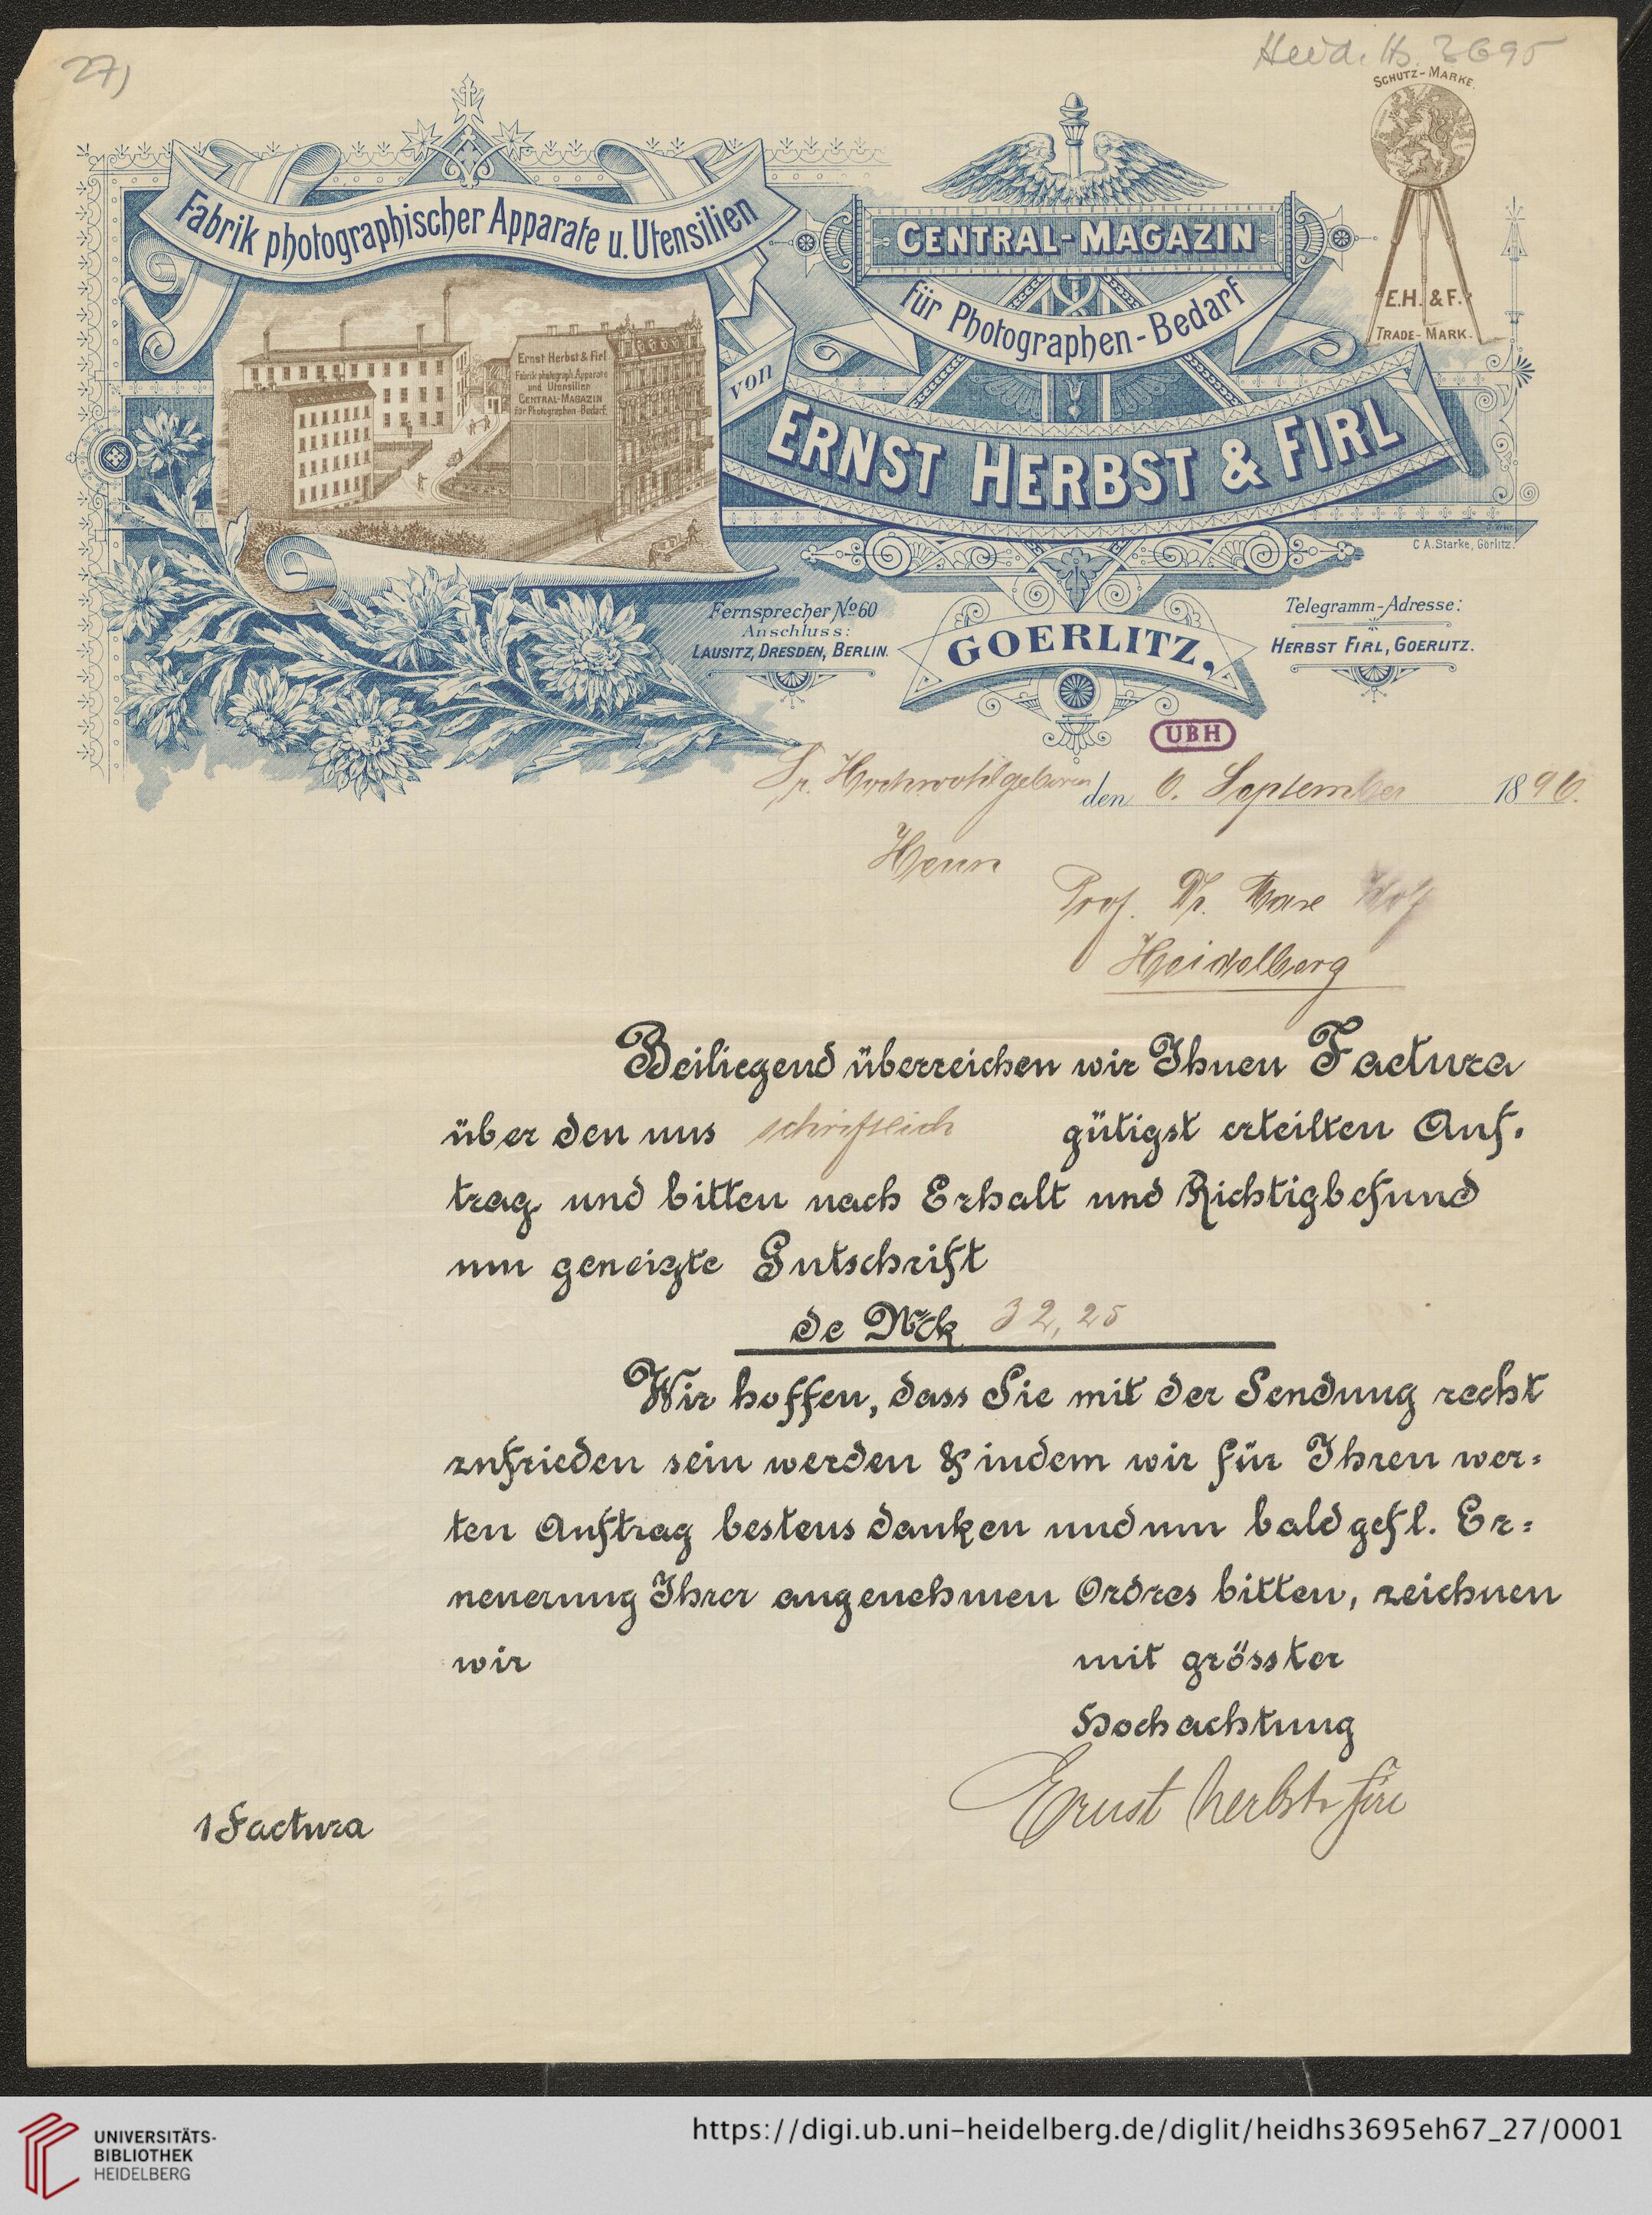 27)
Heid. Hs. 3695
SCHUTZ-MARKE.
E.H. & F.
TRADE-MARK.
Fabrik photographischer Apparate u. Utensilien
Ernst Herbst & Firl
Fabrik photograph. Apparate
und Utensilien
CENTRAL-MAGAZIN
für Photographen-Bedarf.
von
CENTRAL-MAGAZIN
für Photographen-Bedarf
ERNST HERBST & FIRL
C. A. Starke, Görlitz.
Fernsprecher No 60
Anschluss:
LAUSITZ, DRESDEN, BERLIN.
GOERLITZ,
Telegramm-Adresse:
HERBST FIRL, GOERLITZ.
UBH
Sr. Hochwohlgeboren
den 6. September 1896.
Herrn
Prof. Dr. Max Wolf
Heidelberg
Beiliegend überreichen wir Ihnen Factura
über den uns schriftlich gütigst erteilten Auf-
trag und bitten nach Erhalt und Richtigbefund
um geneigte Gutschrift
de Mck 32,25
Wir hoffen, dass Sie mit der Sendung recht
zufrieden sein werden & indem wir für Ihren wer=
ten Auftrag bestens danken und um bald gefl. Er=
neuerung Ihrer angenehmen Ordres bitten, zeichnen
wir mit grösster
Hochachtung
Ernst Herbst & Firl
1 Factura
UNIVERSITÄTS-
BIBLIOTHEK
HEIDELBERG
https://digi.ub.uni-heidelberg.de/diglit/heidhs3695eh67_27/0001